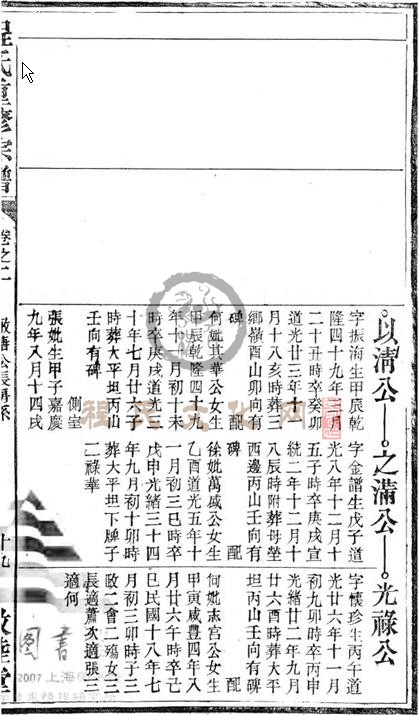 以清公——之滿公——光祿公
字振海生甲辰乾
隆四十九年三月
二十丑時卒癸卯
道光廿三年十一
月十八亥時葬三
鄉嶺酉山卯向有
碑 配
何妣其華公女生
甲辰乾隆四十九
年十二月初十未
時卒庚戌道光三
十年七月廿六子
時葬大平坦丙山
壬向有碑 側室
張妣生甲子嘉慶
九年八月十四戌
字金譜生戊子道
光八年十二月十
五子時卒庚戌宣
統二年十二月十
八辰時附葬母塋
西邊丙山壬向有
碑 配
徐妣萬咸公女生
乙酉道光五年十
一月初三巳時卒
戊申光緒三十四
年九月初十卯時
葬大平坦下牌子
二祿華
字懷珍生丙午道
光廿六年十一月
初九卯時卒丙申
光緒廿二年九月
廿六酉時葬大平
坦丙山壬向有碑
配
何妣志宮公女生
甲寅咸豐四年八
月廿六午時卒己
巳民國十八年七
月初三卯時子三
政二會二殤女三
長適蕭次適張三
適何
程氏重修宗譜
卷之二
公長房系
十九
程氏文化网
圖書
2007 上海